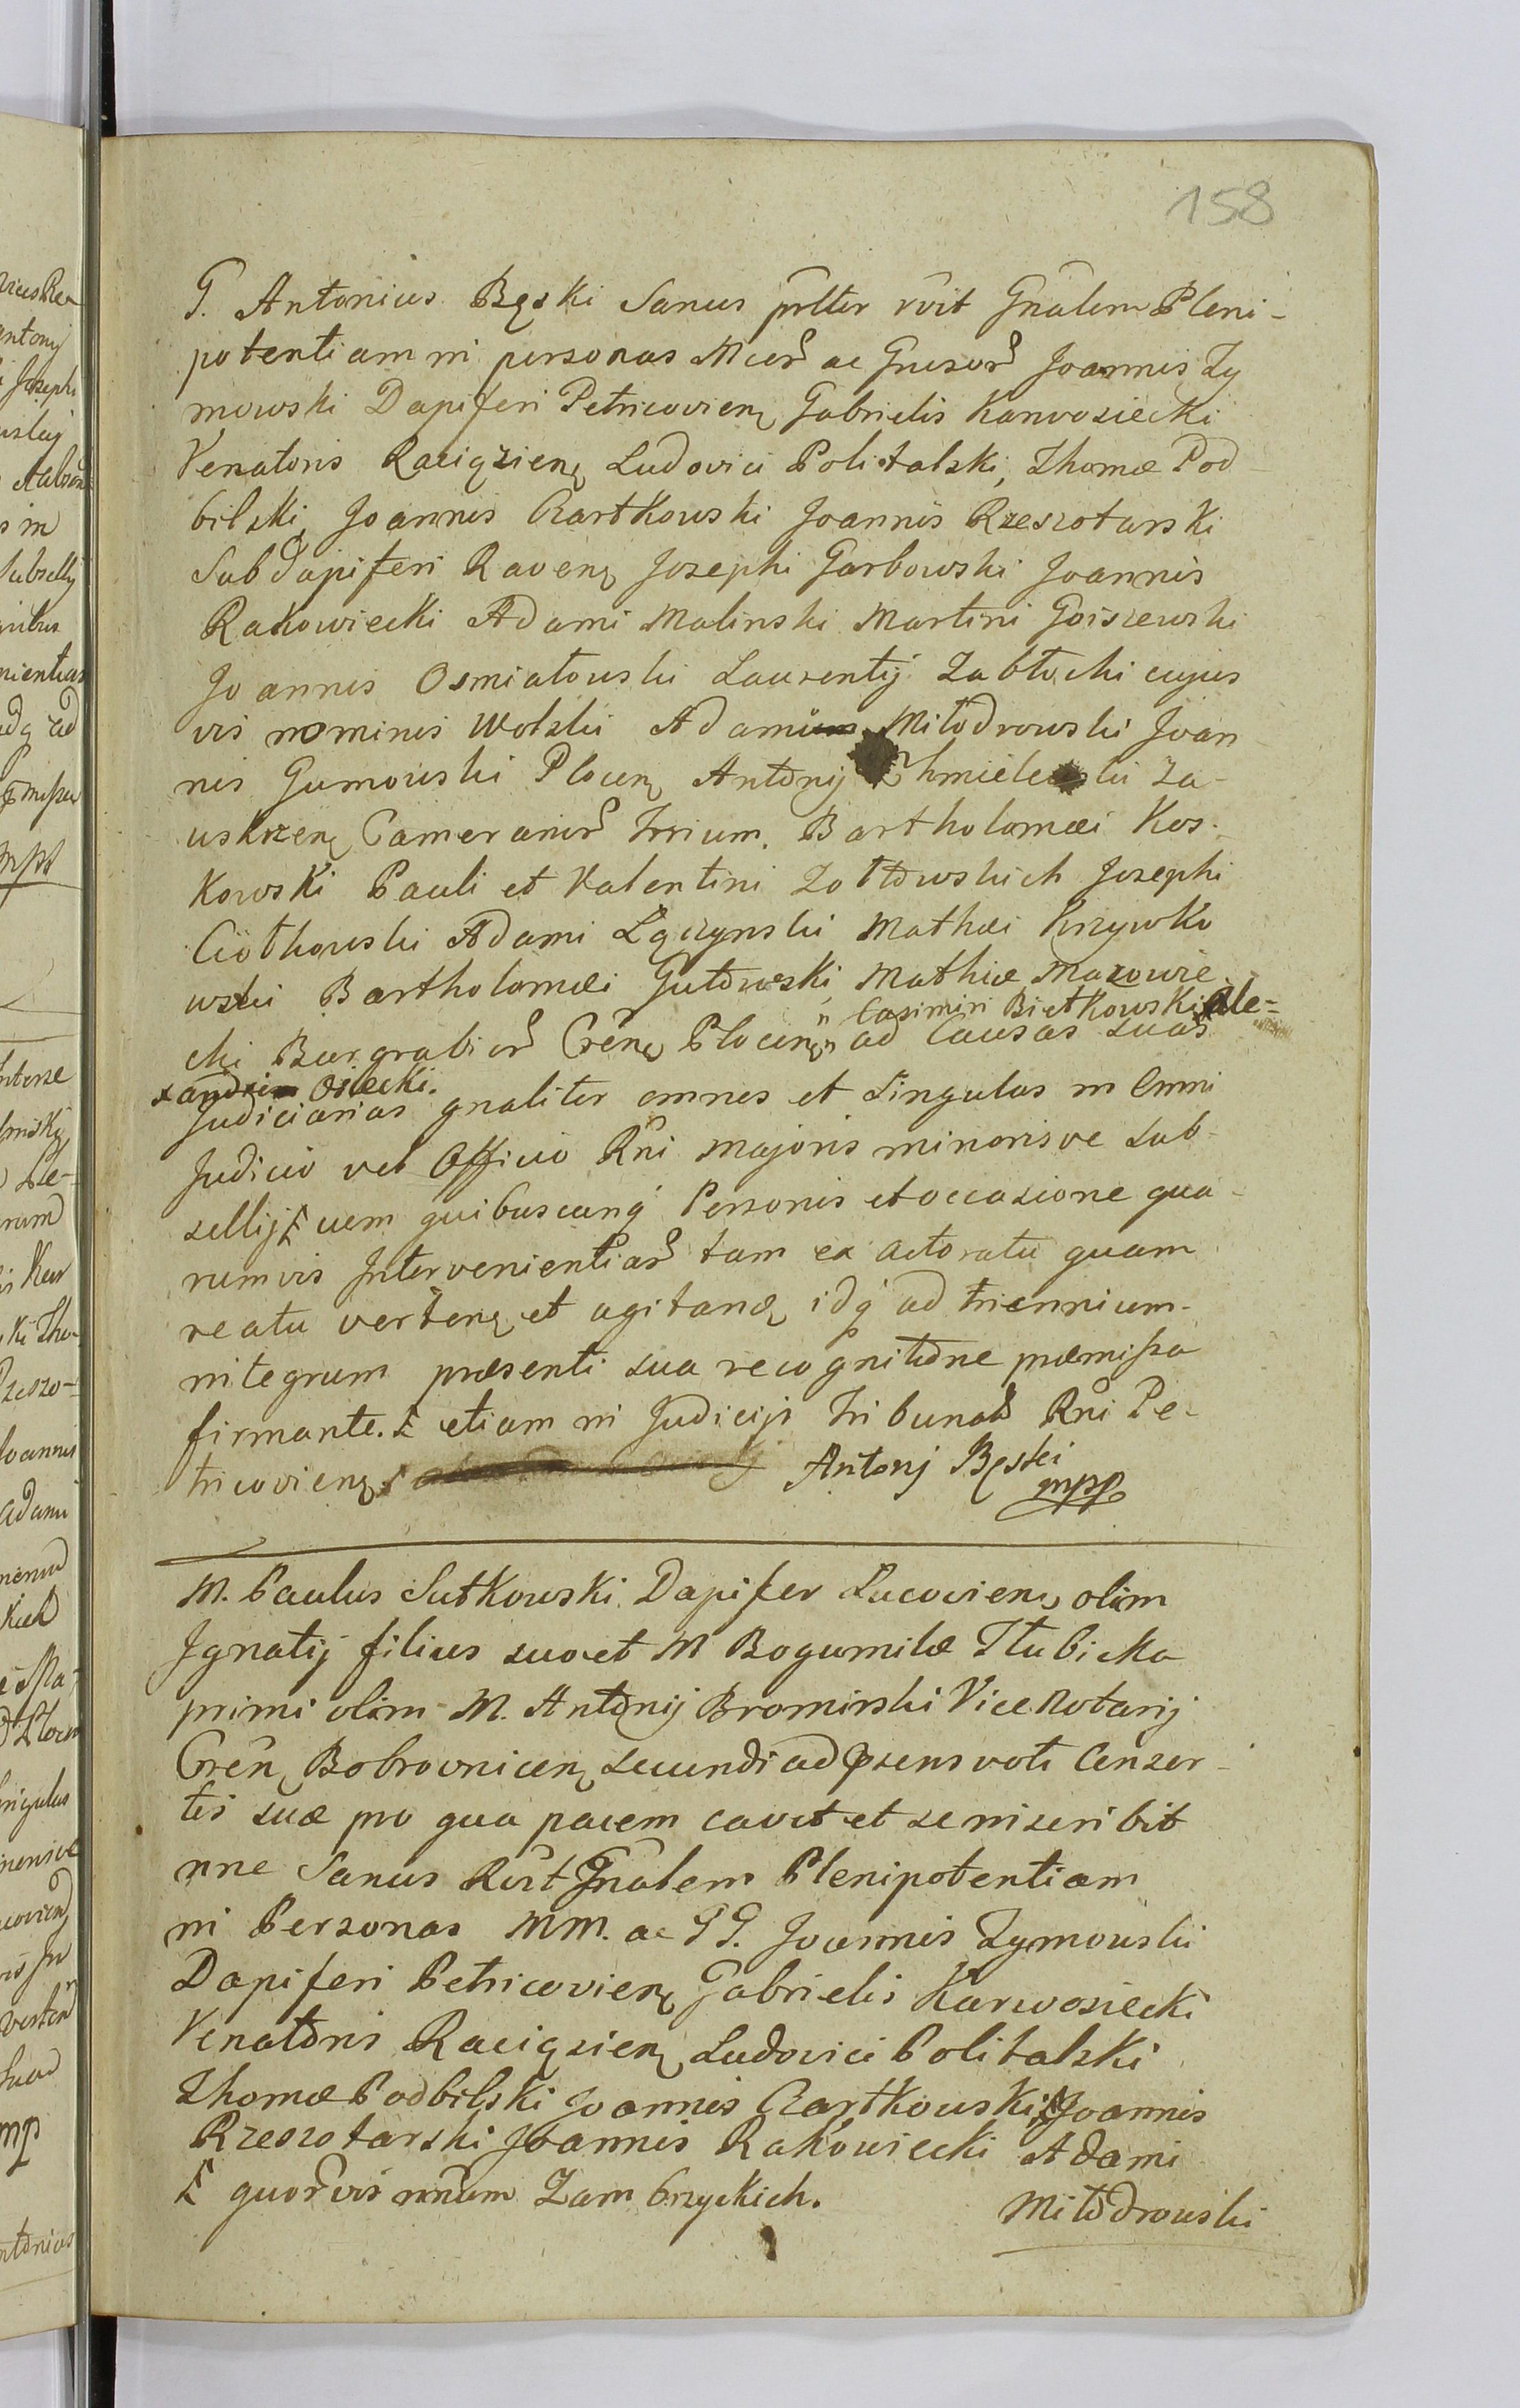 158
G. Antonius Bęski Sanus prltter rvit Gnalem Pleni-
potentiam in personas Mcor ac Gnesor Joannis Zy
mowski Dapiferi Petricovien Gabrielis Karwosiecki
Venatoris Raciązien Ludovici Politalski, Thomæ Pod-
bilski, Joannis Czartkowski Joannis Rzeszotarski
Subdapiferi Raven Josephi Garbowski Joannis
Rakowiecki Adami Malinski Martini Goiszewski
Joannis Osmiałowski Laurentij Zabłocki cujus
vis nominis Wolski Adami Miłodrowski Joan
nis Gumowski Plocen Antonij Chmielewski Za-
uskrzen Camerarior Trrium, Bartholomæi Kos-
kowski Pauli et Valentini Zołtowskich Josephi
Ciołkowski Adami Łączynski Mathæi Krzywko
wski Bartholomæi Gutowski, Mathiæ Mazowie
" Casimiri Biełkowski Ale-
cki Burgrabior Cren Plocen" ad Causas suas
xandri Osiecki.
Judiciarias gnaliter omnes et Singulas in Omni
Judicio vel Officio Rni majoris minorisve sub-
sellij Ł cum quibuscunq Personis et occasione qua-
rumvis Intervenientiar tam ex actoratu quam
reatu verten et agitand idq ad triennium
integrum præsenti sua recognitone præmissa
firmante. Ł etiam in Judicijs Tribunal Rni Pe-
tricovien Antonj Bęski
mpp
M. Paulus Sutkowski Dapifer Lucovien olim
Ignatij filius suo et M Bogumilæ Tłubicka
primi olim M. Antonij Bromirski Vice Notarij
Cren Bobrovnicen secundi ad præsens voti Consor-
tis suæ pro qua pacem cavet et se inscribit
nne Sanus Rvit Gnalem Plenipotentiam
in Personas MM. ac GG. Joannis Zymowski
Dapiferi Petricovien Gabrielis Karwosiecki
Venatoris Raciązien Ludovici Politalski
Thomæ Podbilski Joannis Czartkowski Ł Joannis
Rzeszotarski Joannis Rakowiecki Adami
Ł quorvis nnum Zambrzyckich.
Miłodrowski